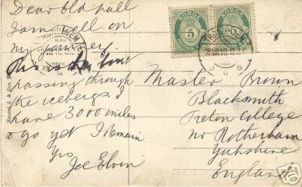 Dear old pall
I am well on
my journey.
This is the time
passing through
the icebergs. I
have 3000 miles
to go yet I Remain
Yrs
Joe Elvin
NORGE
5
NORGE
Master Brown
Blacksmith
Treton College
Nr Rotherham
Yorkshire
England